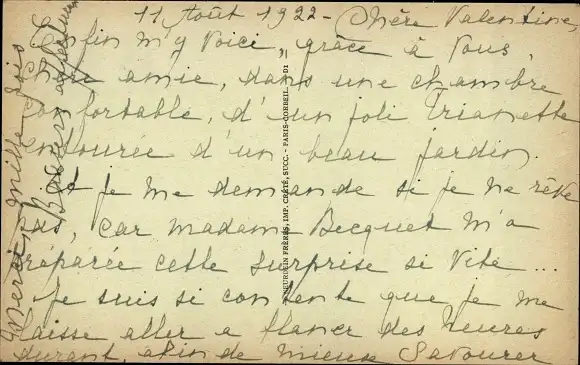 11 Août 1922 - Chère Valentine,
Enfin m'y voici, grâce à vous,
chère amie, dans une chambre
confortable, d'un joli Trianette
entourée d'un beau jardin.
et je me demande si je ne rêve
pas, car madame Becquet m'a
préparée cette surprise si vite...
Je suis si contente que je me
laisse aller a flaner des heures
durant, afin de mieux savourer
Merci, mille fois
Baisers affectueux
FRÈRES, IMP. CRÉTÉ, SUCC. - PARIS-CORBEIL.